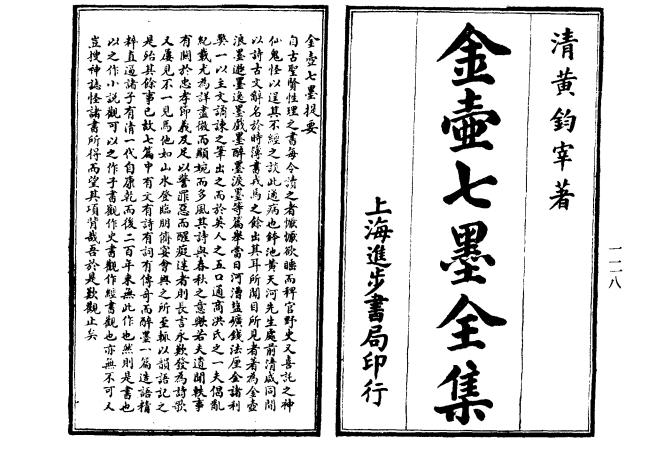 清黃鈞宰著
金壺七墨全集
上海進步書局印行
一一二八
金壺七墨提要
自古聖賢性理之書每令讀之者懨懨欲睡而稗官野史又喜託之神
仙鬼怪以逞其不經之談此通病也鉢池黃天河先生處前清咸同間
以詩古文辭名於時簿書戎馬之餘出其耳所聞目所見者著為金壺
浪墨遯墨逸墨戲墨醉墨淚墨等篇舉當日河漕鹽礦錢法厘金諸利
獘一以主文譎諫之筆出之而於英人之五口通商洪氏之一夫倡亂
紀載尤為詳盡微而顯婉而多風其詩與春秋之意歟若夫遺聞軼事
有關於忠孝節義及足以警罪惡而醒癡迷者則長言永歎發為詩歌
又屢見不一見焉他如山水登臨朋儕宴會興之所至輒以韻語記之
是殆其餘事已故七篇中有文有詩有詞有傳奇而醉墨一篇造語精
粹直逼諸子有清一代自康乾而後二百年來無此作也然則是書也
以之作小說觀可以之作子書觀作史書觀作經書觀也亦無不可又
豈搜神誌怪諸書所得而望其項背哉吾於是歎觀止矣